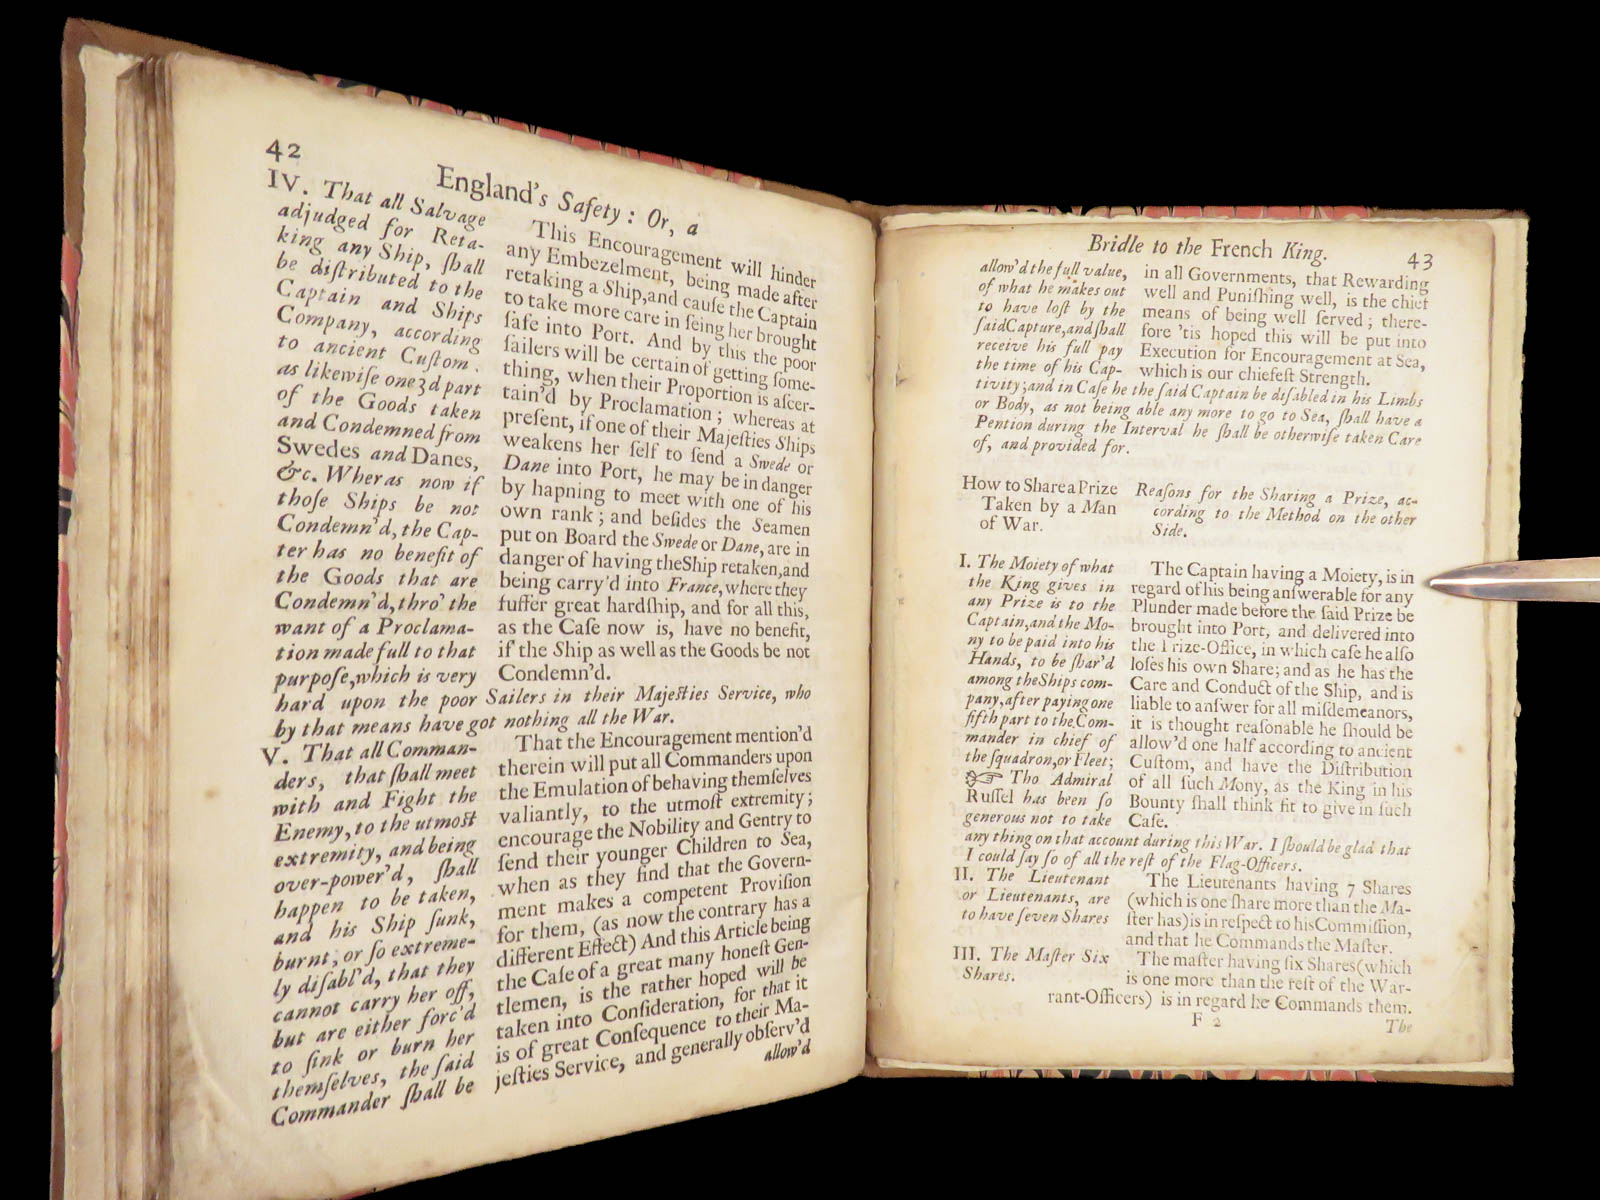 42
England's Safety: Or, a
IV. That all Salvage
adjudged for Reta-
king any Ship, ſhall
be diſtributed to the
Captain and Ships
Company, according
to ancient Cuſtom.
as likewiſe one 3d part
of the Goods taken
and Condemned from
Swedes and Danes,
&c. Wheras now if
thoſe Ships be not
Condemn'd, the Cap-
ter has no benefit of
the Goods that are
Condemn'd, thro' the
want of a Proclama-
tion made full to that
purpoſe, which is very
hard upon the poor Sailers in their Majeſties Service, who
by that means have got nothing all the War.
This Encouragement will hinder
any Embezelment, being made after
retaking a Ship, and cauſe the Captain
to take more care in ſeing her brought
ſafe into Port. And by this the poor
ſailers will be certain of getting ſome-
thing, when their Proportion is aſcer-
tain'd by Proclamation; whereas at
preſent, if one of their Majeſties Ships
weakens her ſelf to ſend a Swede or
Dane into Port, he may be in danger
by hapning to meet with one of his
own rank; and beſides the Seamen
put on Board the Swede or Dane, are in
danger of having the Ship retaken, and
being carry'd into France, where they
ſuffer great hardſhip, and for all this,
as the Caſe now is, have no benefit,
if the Ship as well as the Goods be not
Condemn'd.
V. That all Comman-
ders, that ſhall meet
with and Fight the
Enemy, to the utmost
extremity, and being
over-power'd, ſhall
happen to be taken,
and his Ship ſunk,
burnt, or ſo extreme-
ly diſabl'd, that they
cannot carry her off,
but are either forc'd
to ſink or burn her
themſelves, the ſaid
Commander ſhall be
That the Encouragement mention'd
therein will put all Commanders upon
the Emulation of behaving themſelves
valiantly, to the utmoſt extremity;
encourage the Nobility and Gentry to
ſend their younger Children to Sea,
when as they find that the Govern-
ment makes a competent Proviſion
for them, (as now the contrary has a
different Effect) And this Article being
the Caſe of a great many honeſt Gen-
tlemen, is the rather hoped will be
taken into Conſideration, for that it
is of great Conſequence to their Ma-
jeſties Service, and generally obſerv'd
allow'd
Bridle to the French King.
43
allow'd the full value,
of what he makes out
to have loſt by the
ſaid Capture, and ſhall
receive his full pay
the time of his Cap-
tivity; and in Caſe he the ſaid Captain be diſabled in his Limbs
or Body, as not being able any more to go to Sea, ſhall have a
Pention during the Interval he ſhall be otherwiſe taken Care
of, and provided for.
in all Governments, that Rewarding
well and Puniſhing well, is the chief
means of being well ſerved; there-
fore 'tis hoped this will be put into
Execution for Encouragement at Sea,
which is our chiefeſt Strength.
How to Share a Prize
Taken by a Man
of War.
Reaſons for the Sharing a Prize, ac-
cording to the Method on the other
Side.
I. The Moiety of what
the King gives in
any Prize is to the
Captain, and the Mo-
ny to be paid into his
Hands, to be ſhar'd
among the Ships com-
pany, after paying one
fifth part to the Com-
mander in chief of
the ſquadron, or Fleet;
☞ Tho Admiral
Ruſſel has been ſo
generous not to take
any thing on that account during this War. I ſhould be glad that
I could ſay ſo of all the reſt of the Flag-Officers.
The Captain having a Moiety, is in
regard of his being anſwerable for any
Plunder made before the ſaid Prize be
brought into Port, and delivered into
the Prize-Office, in which caſe he alſo
loſes his own Share; and as he has the
Care and Conduct of the Ship, and is
liable to anſwer for all miſdemeanors,
it is thought reaſonable he ſhould be
allow'd one half according to ancient
Cuſtom, and have the Diſtribution
of all ſuch Mony, as the King in his
Bounty ſhall think fit to give in ſuch
Caſe.
II. The Lieutenant
or Lieutenants, are
to have ſeven Shares
The Lieutenants having 7 Shares
(which is one ſhare more than the Ma-
ſter has) is in reſpect to his Commiſſion,
and that he Commands the Maſter.
III. The Maſter Six
Shares.
The maſter having ſix Shares (which
is one more than the reſt of the War-
rant-Officers) is in regard he Commands them.
F 2
The